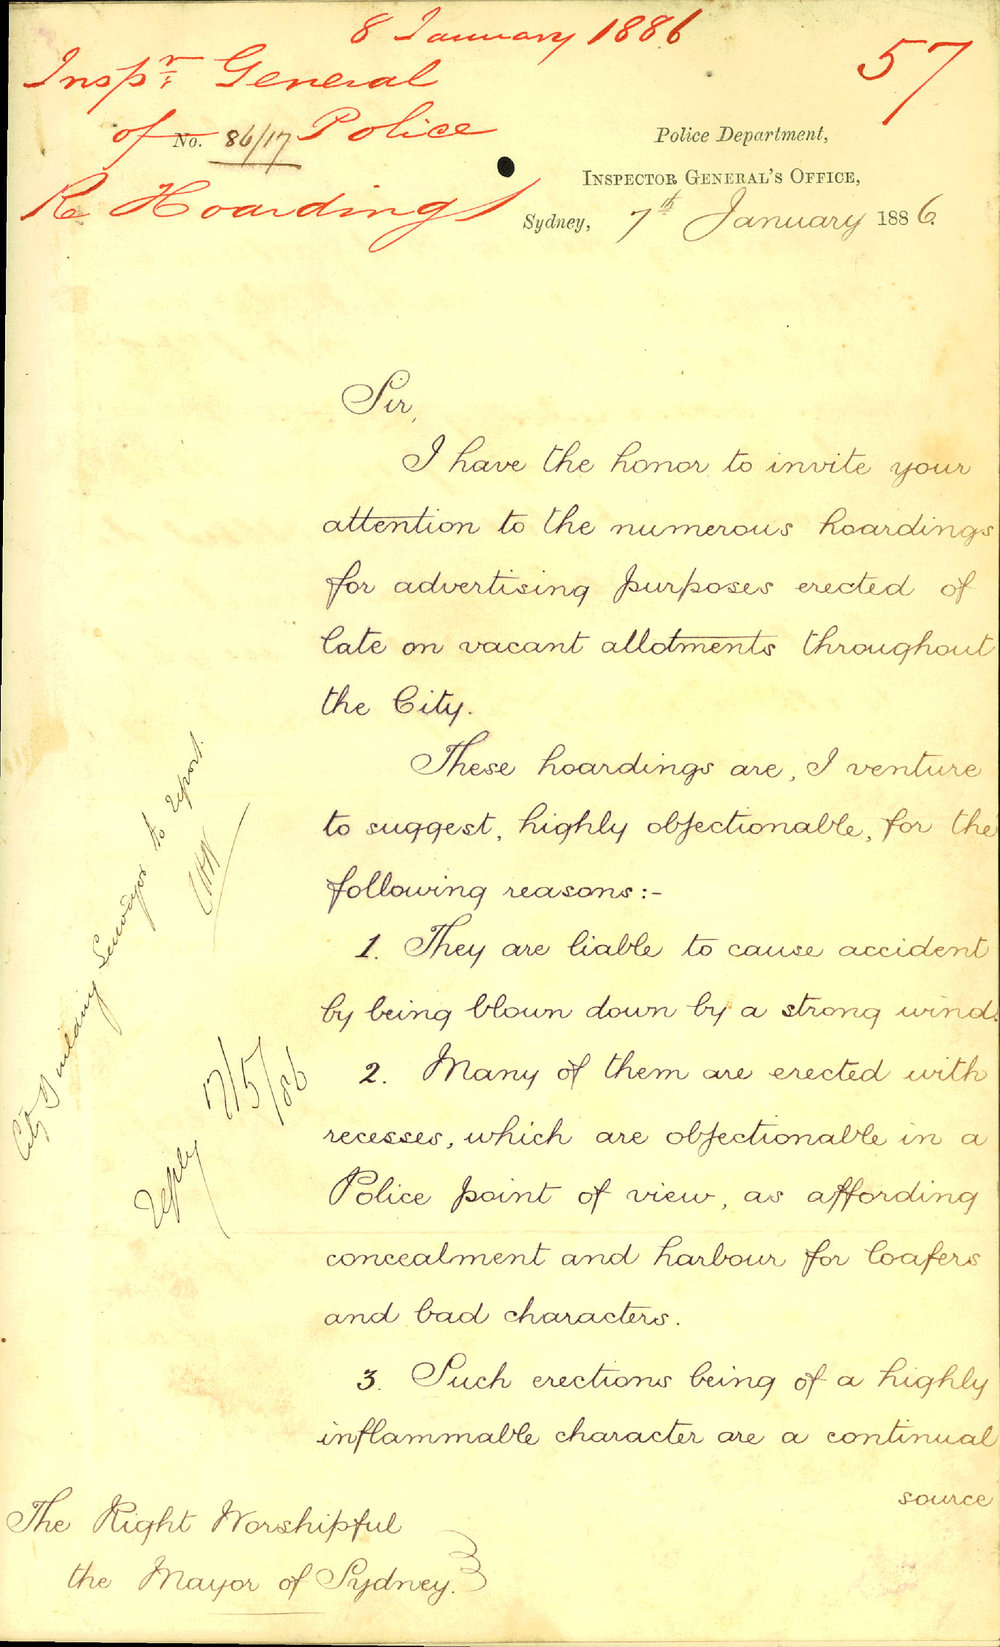 8 January 1886
57
Inspr. General
of Police
No. 86/17
Re Hoardings
Police Department,
INSPECTOR GENERAL'S OFFICE,
Sydney, 7th January 1886.
Sir,
I have the honor to invite your
attention to the numerous hoardings
for advertising purposes erected of
late on vacant allotments throughout
the City.
These hoardings are, I venture
to suggest, highly objectionable, for the
following reasons:-
1. They are liable to cause accident
by being blown down by a strong wind.
2. Many of them are erected with
recesses, which are objectionable in a
Police point of view, as affording
concealment and harbour for loafers
and bad characters.
3. Such erections being of a highly
inflammable character are a continual
source
The Right Worshipful
the Mayor of Sydney.
City Building Surveyor to report.
Reply